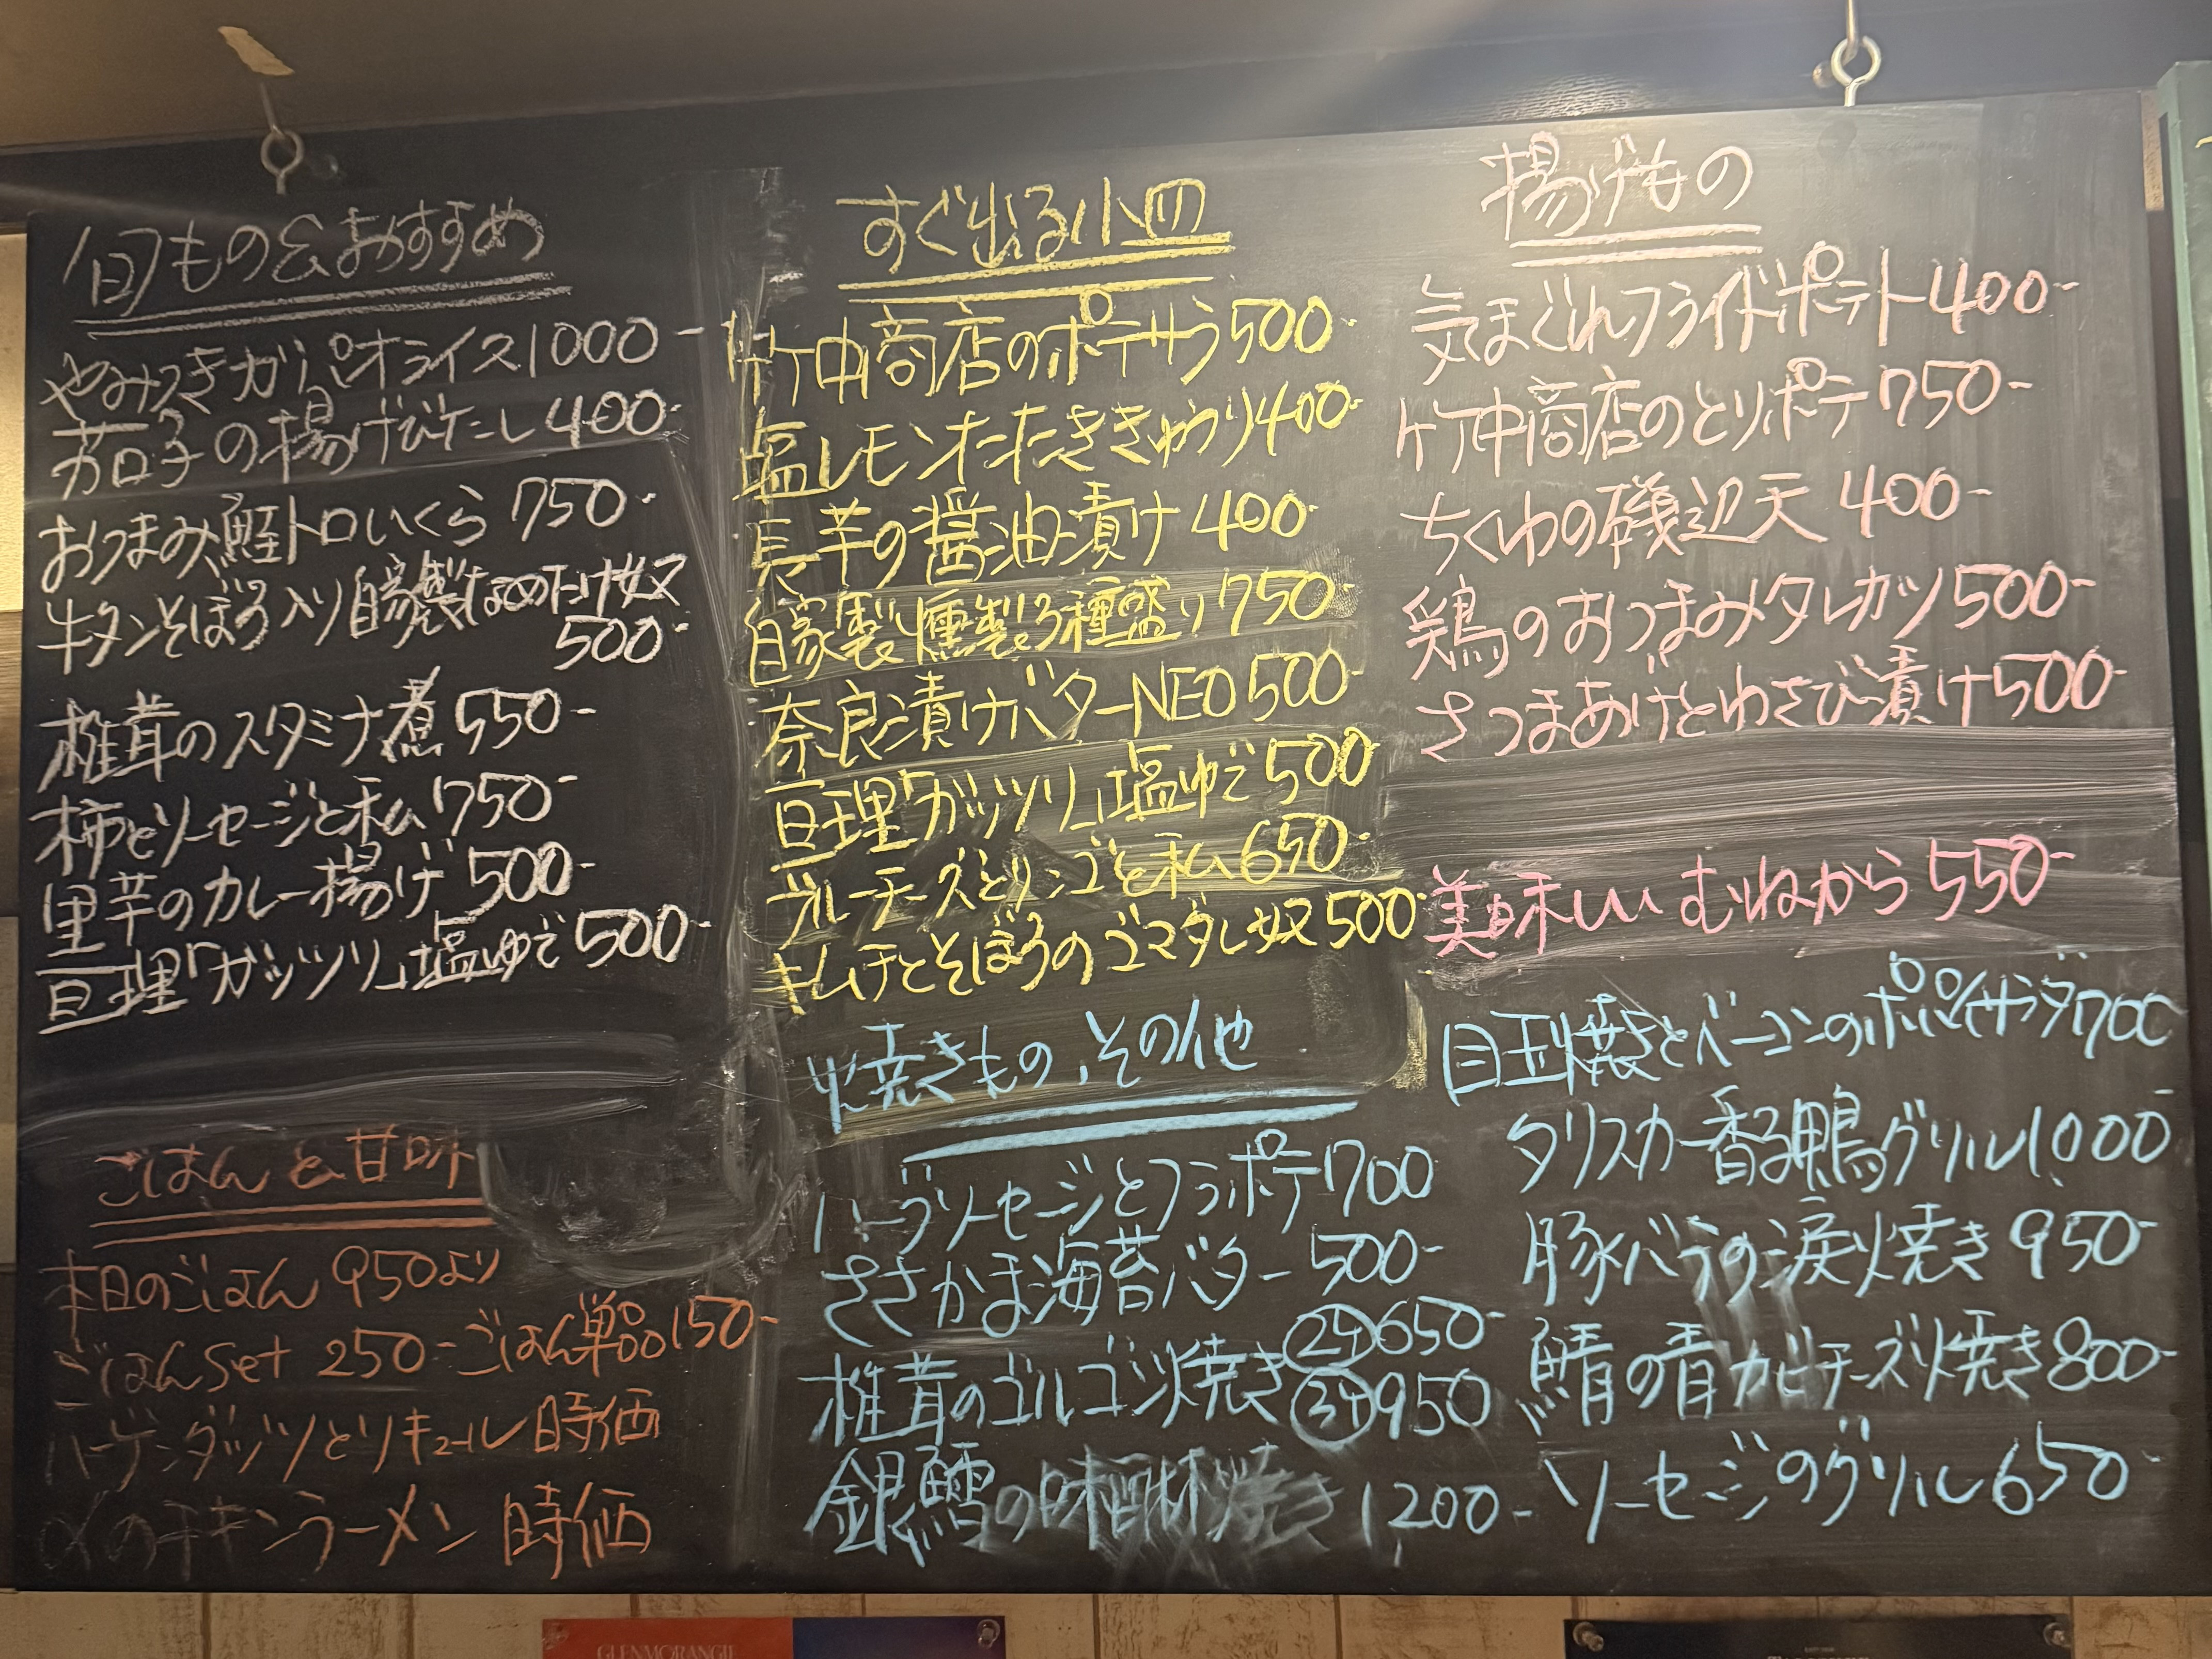 旬もの&おすすめ
やみつきガパオライス1000-
茄子の揚げびたし400-
おつまみ鮭トロいくら 750-
牛タンそぼろ入り自家製なめたけ奴
500-
椎茸のスタミナ煮 550-
柿とソーセージと私 750-
里芋のカレー揚げ 500-
亘理「ガッツリ」塩ゆで 500-
ごはん&甘味
本日のごはん 950より
ごはんset 250-ごはん単品150-
ハーゲンダッツとリキュール 時価
〆のチキンラーメン 時価
すぐ出る小皿
竹中商店のポテサラ500-
塩レモンたたききゅうり400-
長芋の醤油漬け 400-
自家製燻製3種盛り750-
奈良漬けバターNEO500-
亘理「ガッツリ」塩ゆで500-
ブルーチーズとリンゴと私650-
キムチとそぼろのゴマダレ奴500-
焼きもの、その他
ハーブソーセージとフラポテ700
ささかま海苔バター 500-
椎茸のゴルゴンゾ焼き 650-
950
銀鱈の味醂焼き 1200-
揚げもの
気まぐれフライドポテト400-
竹中商店のとりポテ750-
ちくわの磯辺天 400-
鶏のおつまみタレカツ500-
さつまあげとわさび漬け500-
美味しいむねから550-
目玉焼きとベーコンのポパイサラダ700-
タリスカー香る鴨グリル1000
豚バラの涙焼き 950-
鯖の青カビチーズ焼き800-
ソーセージのグリル650-
GLENMORANGIE